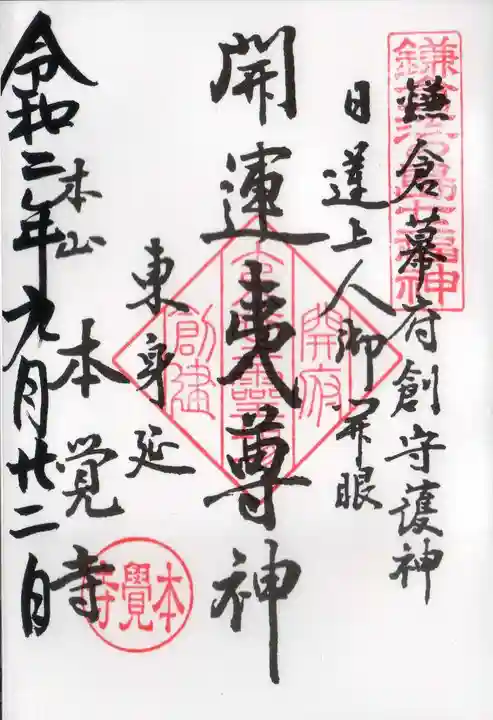 鎌倉幕府創守護神
日蓮上人御開眼
開運夷尊神
東身延
本山
本覚寺
令和二年九月廿二日
鎌倉江の島七福神
開府
創建
本覺寺